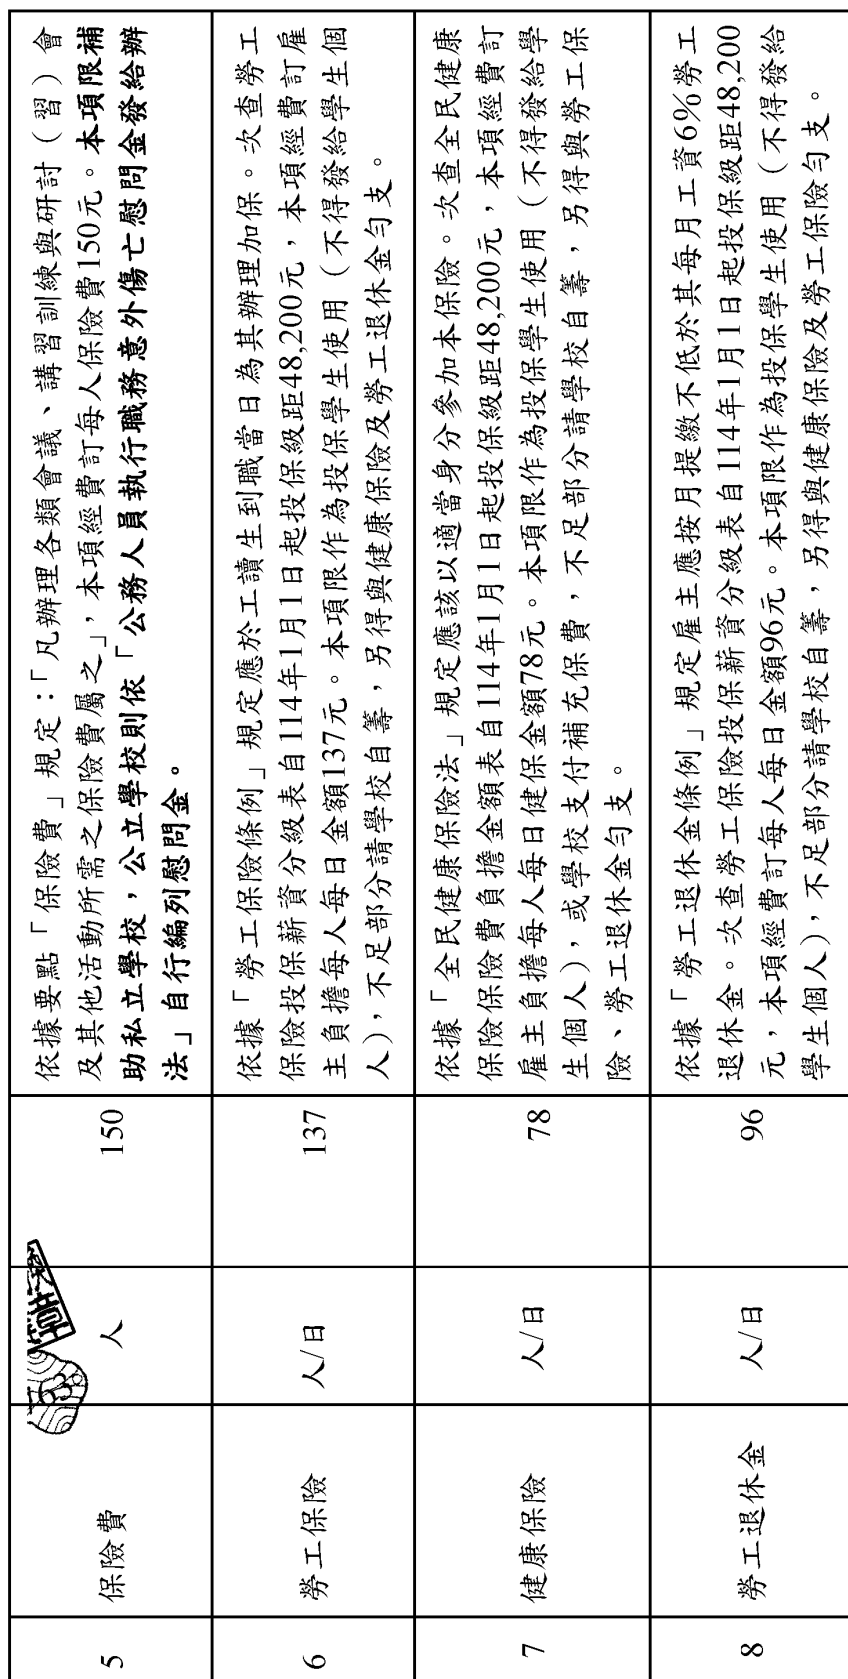 5
保險費
人
150
依據要點「保險費」規定：「凡辦理各類會議、講習訓練與研討（習）會
及其他活動所需之保險費屬之」，本項經費訂每人保險費150元。本項限補
助私立學校，公立學校則依「公務人員執行職務意外傷亡慰問金發給辦
法」自行編列慰問金。
6
勞工保險
人/日
137
依據「勞工保險條例」規定應於工讀生到職當日為其辦理加保。次查勞工
保險投保薪資分級表自114年1月1日起投保級距48,200元，本項經費訂雇
主負擔每人每日金額137元。本項限作為投保學生使用（不得發給學生個
人），不足部分請學校自籌，另得與健康保險及勞工退休金勻支。
7
健康保險
人/日
78
依據「全民健康保險法」規定應該以適當身分參加本保險。次查全民健康
保險保險費負擔金額表自114年1月1日起投保級距48,200元，本項經費訂
雇主負擔每人每日健保金額78元。本項限作為投保學生使用（不得發給學
生個人），或學校支付補充保費，不足部分請學校自籌，另得與勞工保
險、勞工退休金勻支。
8
勞工退休金
人/日
96
依據「勞工退休金條例」規定雇主應按月提繳不低於其每月工資6%勞工
退休金。次查勞工保險投保薪資分級表自114年1月1日起投保級距48,200
元，本項經費訂每人每日金額96元。本項限作為投保學生使用（不得發給
學生個人），不足部分請學校自籌，另得與健康保險及勞工保險勻支。